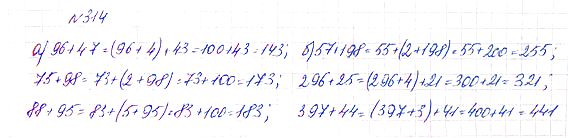 №314
а) 96+47=(96+4)+43=100+43=143; б) 57+198=55+(2+198)=55+200=255;
75+98=73+(2+98)=73+100=173; 296+25=(296+4)+21=300+21=321;
88+95=83+(5+95)=83+100=183; 397+44=(397+3)+41=400+41=441